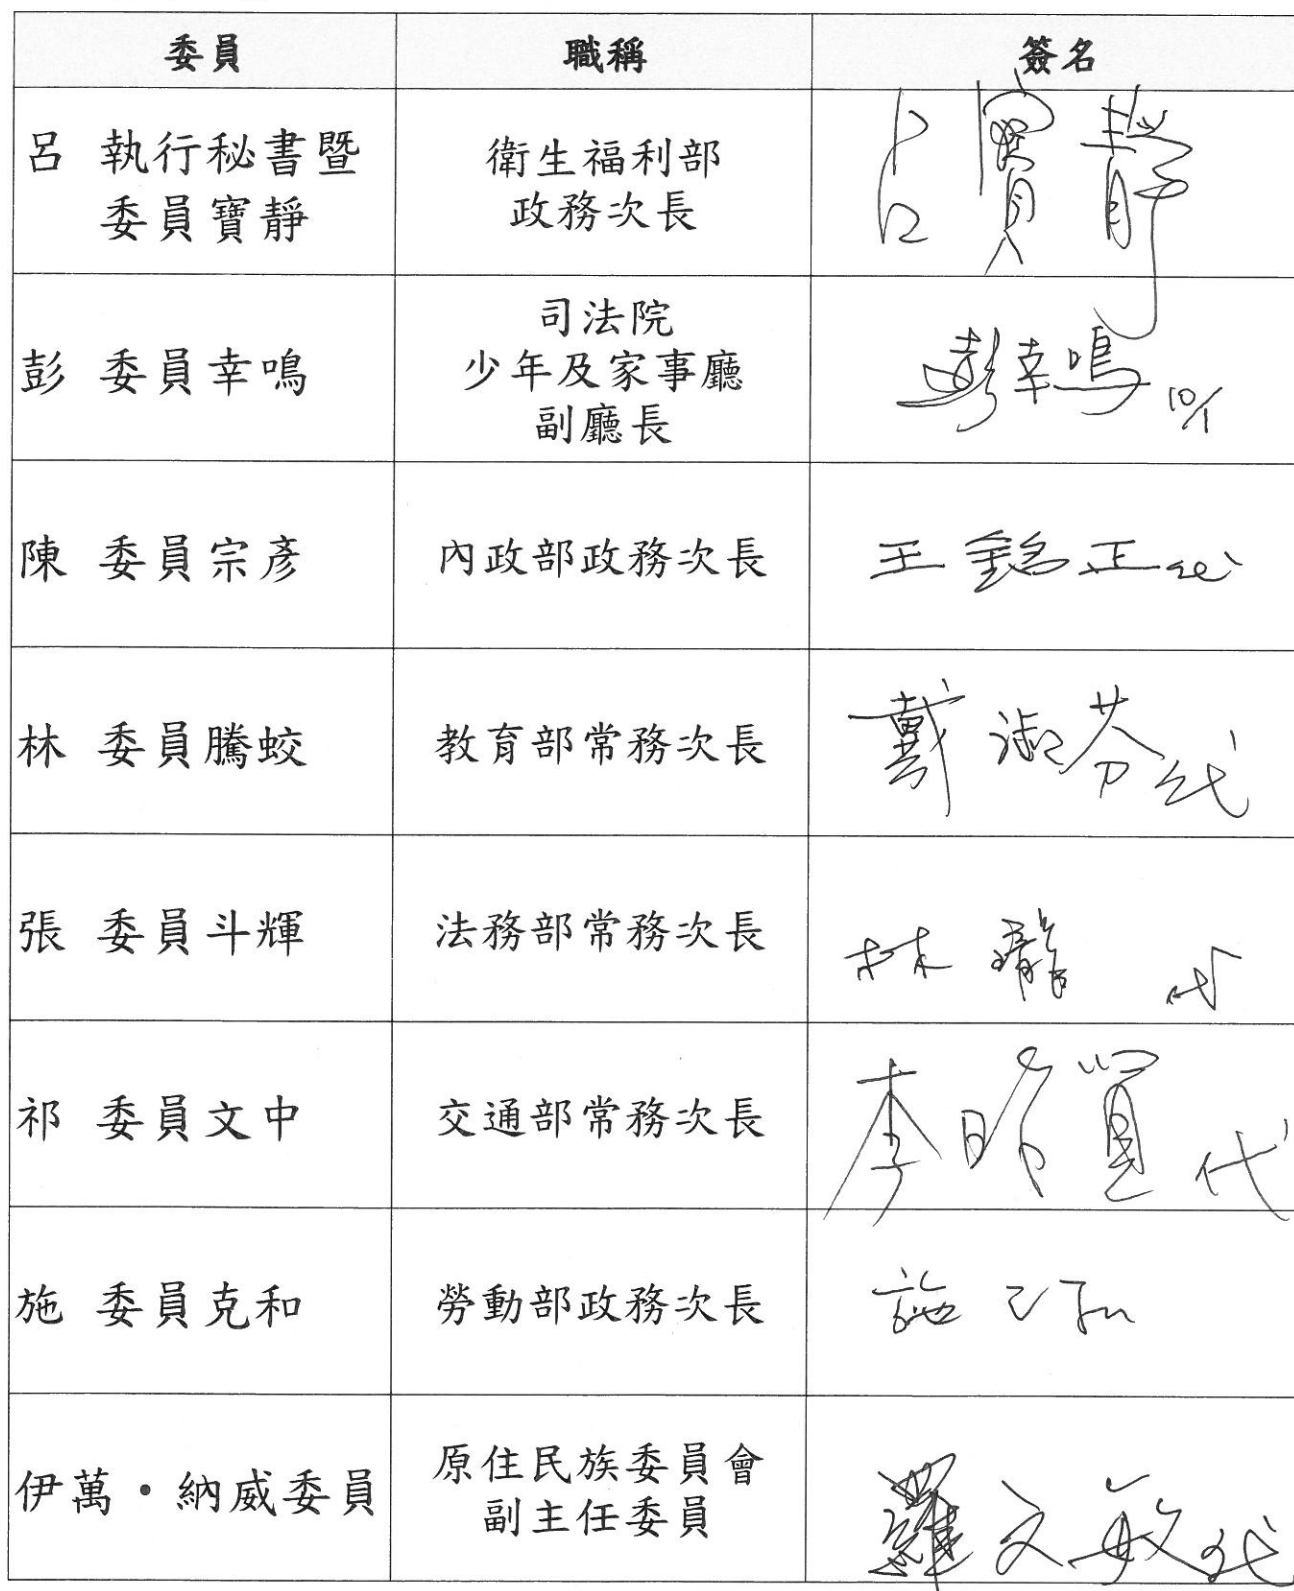 委員 職稱 簽名
呂 執行秘書暨
委員寶靜
衛生福利部
政務次長
呂寶靜
彭 委員幸鳴
司法院
少年及家事廳
副廳長
彭幸鳴 10/1
陳 委員宗彥 內政部政務次長 王 正代
林 委員騰蛟 教育部常務次長 戴淑芬代
張 委員斗輝 法務部常務次長 林 代
祁 委員文中 交通部常務次長 李 代
施 委員克和 勞動部政務次長 施克和
伊萬・納威委員
原住民族委員會
副主任委員
羅文敏代